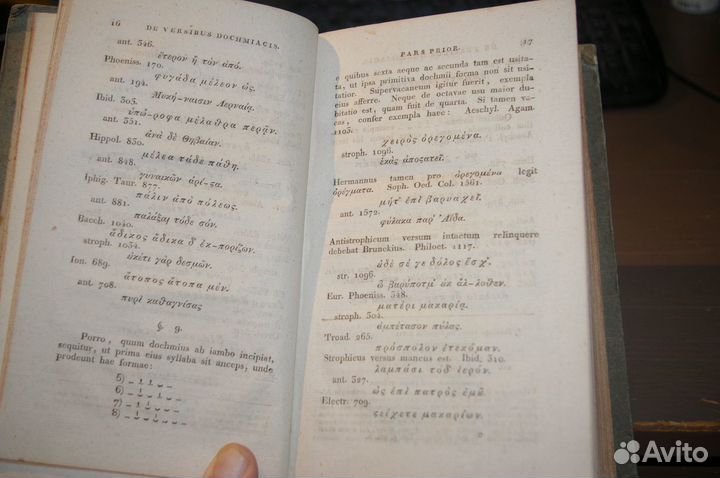 16 DE VERSIBUS DOCHMIACIS.
ant. 346.
ἕτερον ἢ τὸν ἀπό.
Phoeniss. 170.
φυγάδα μέλεον ὡς.
ant. 194.
Μυκήναισιν Λερναίᾳ.
Ibid. 303.
ὑπώροφα μέλαθρα περῇν.
ant. 331.
ἀνὰ δὲ Θηβαίαν.
Hippol. 830.
μέλεα τάδε πάθη.
ant. 848.
γυναικῶν ἀρίςα.
Iphig. Taur. 877.
πάλιν ἀπὸ πόλεως.
ant. 881.
παλάξαι τόδε σόν.
Bacch. 1040.
ἄδικος ἄδικα δ' ἐκ-πορίζων.
stroph. 1034.
ἐκέτι γὰρ δεσμῶν.
Ion. 689.
ἄτοπος ἄτοπα μέν.
ant. 708.
περὶ καθαγνίσας
§ 9.
Porro, quum dochmius ab iambo incipiat,
sequitur, ut prima eius syllaba sit anceps, unde
prodeunt hae formae:
5)
6)
7)
8)
PARS PRIOR. 17
e quibus sexta neque ac secunda tam est usita-
ta, ut ipsa primitiva dochmii forma non sit usi-
tatior. Supervacaneum igitur fuerit, exempla
eius afferre. Neque de octavae usu maior du-
bitatio est, quam fuit de quarta. Si tamen vo-
cas, confer exempla haec: Aeschyl. Agam.
1103.
χειρὸς ὀρεγομένα.
stroph. 1096.
ἑκὰς ἀποςατεῖ.
Hermannus tamen pro ὀρεγομένα legit
ὀρέγματα. Soph. Oed. Col. 1561.
μήτ' ἐπὶ βαρυαχεῖ.
ant. 1572.
φύλακα παρ' Ἀΐδᾳ.
Antistrophicum versum intactum relinquere
debebat Brunckius. Philoct. 1117.
ἐδὲ σέ γε δόλος ἔσχ'.
str. 1096.
ὦ βαρύποτμ' ἐκ ἀλ-λοθεν.
Eur. Phoeniss. 348.
ματέρι μακαρίᾳ.
stroph. 304.
ἀμπέτασον πύλας.
Troad. 265.
πρόσπολον ἐτεκόμαν.
Strophicus versus mancus est. Ibid. 310.
λαμπάσι τόδ' ἱερόν.
ant. 327.
ὡς ἐπὶ πατρὸς ἐμῶ.
Electr. 709.
ςείχετε μακαρίων.
Avito